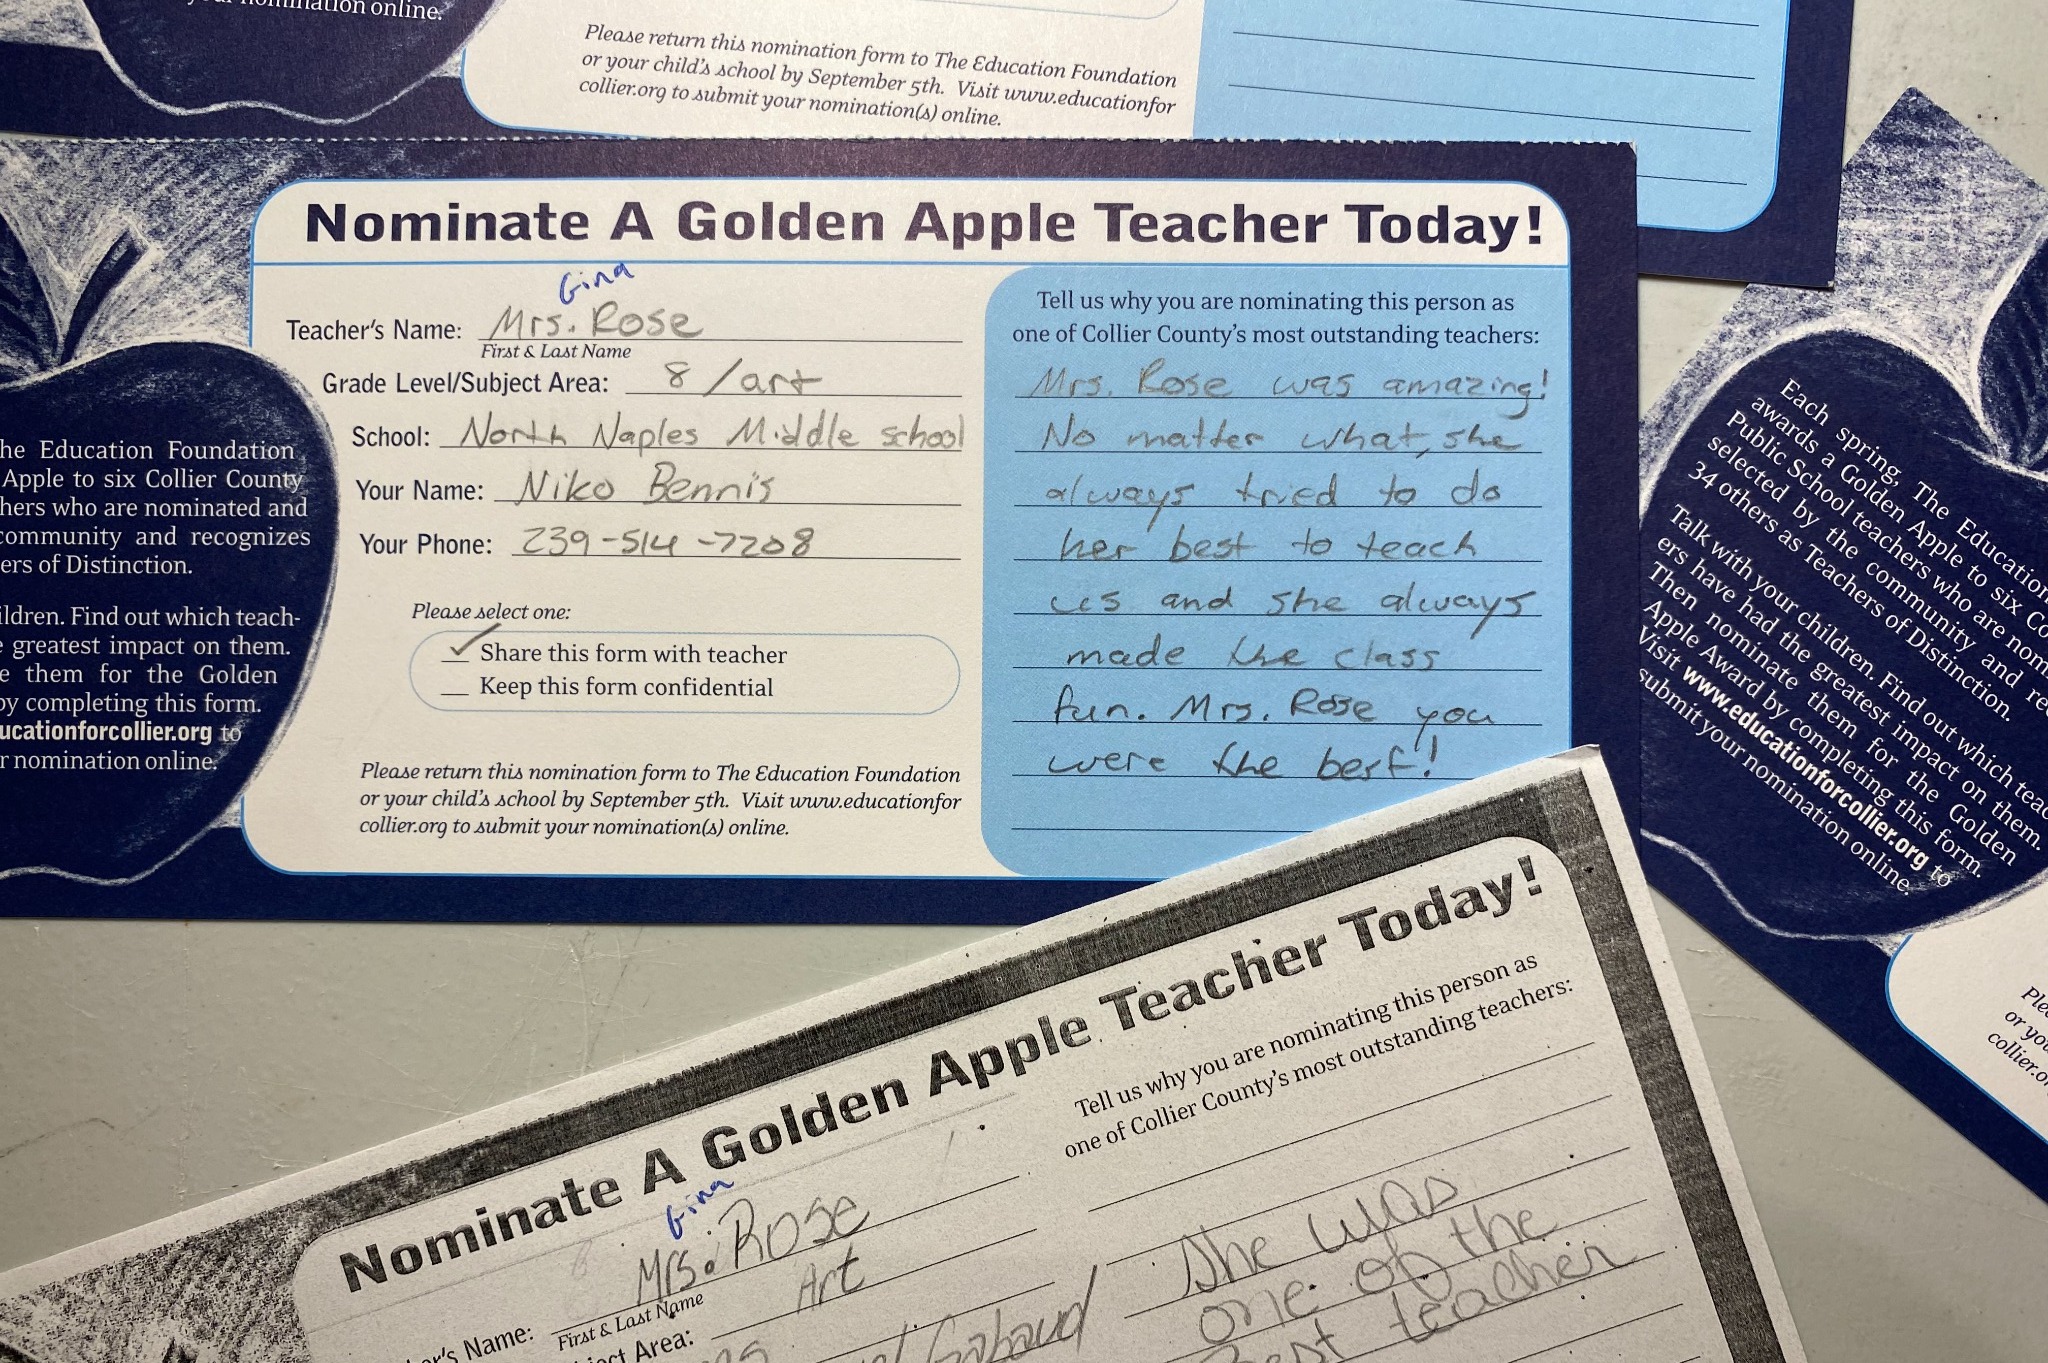 your nomination online.
Please return this nomination form to The Education Foundation
or your child's school by September 5th. Visit www.educationfor
collier.org to submit your nomination(s) online.
Nominate A Golden Apple Teacher Today!
Gina
Teacher's Name: Mrs. Rose
First & Last Name
Grade Level/Subject Area: 8/art
School: North Naples Middle school
Your Name: Niko Bennis
Your Phone: 239-514-7208
Please select one:
✓ Share this form with teacher
Keep this form confidential
Please return this nomination form to The Education Foundation
or your child's school by September 5th. Visit www.educationfor
collier.org to submit your nomination(s) online.
Tell us why you are nominating this person as
one of Collier County's most outstanding teachers:
Mrs. Rose was amazing!
No matter what, she
always tried to do
her best to teach
us and she always
made the class
fun. Mrs. Rose you
were the best!
he Education Foundation
Apple to six Collier County
hers who are nominated and
community and recognizes
ers of Distinction.
ildren. Find out which teach-
e greatest impact on them.
e them for the Golden
by completing this form.
ucationforcollier.org to
r nomination online.
Each spring, The Education
awards a Golden Apple to six Co
Public School teachers who are nom
selected by the community and re
34 others as Teachers of Distinction.
Talk with your children. Find out which teac
ers have had the greatest impact on them.
Then nominate them for the Golden
Apple Award by completing this form.
Visit www.educationforcollier.org to
submit your nomination online.
Ple
or you
collier.o
Nominate A Golden Apple Teacher Today!
Gina
er's Name: Mrs. Rose
First & Last Name
ject Area: Art
Tell us why you are nominating this person as
one of Collier County's most outstanding teachers:
She was
one of the
best teacher